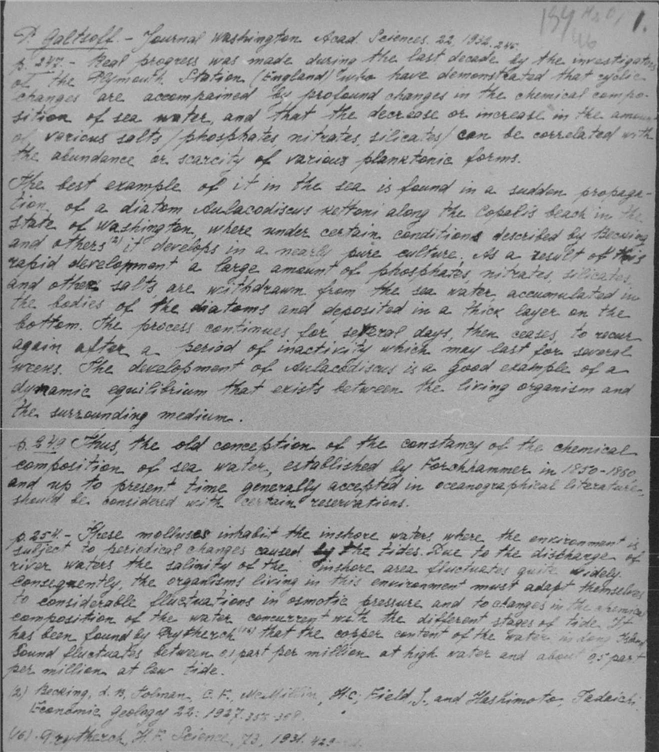 1.
P. Galtsoff. - Journal Washington Acad. Sciences. 22, 1932. 245.
p. 247. - Real progress was made during the last decade by the investigators
of the Plymouth Station (England) who have demonstrated that cyclic
changes are accompained by profound changes in the chemical compo-
sition of sea water, and that the decrease or increase in the amount
of various salts /phosphates, nitrates, silicates/ can be correlated with
the abundance or scarcity of various planktonic forms.
The best example of it in the sea is found in a sudden propaga-
tion of a diatom Aulacodiscus kettoni along the Copalis beach in the
state of Washington, where under certain conditions described by Becking
and others (2) it develops in a nearly pure culture. As a result of this
rapid development a large amount of phosphates, nitrates, silicates,
and other salts are withdrawn from the sea water, accumulated in
the bodies of the diatoms and deposited in a thick layer on the
bottom. The process continues for several days, then ceases, to recur
again after a period of inactivity which may last for several
weeks. The development of Aulacodiscus is a good example of a
dynamic equilibrium that exists between the living organism and
the surrounding medium.
p. 249 Thus, the old conception of the constancy of the chemical
composition of sea water, established by Forchhammer in 1850-1860
and up to present time generally accepted in oceanographical literature
should be considered with certain reservations.
p. 254 - These molluscs inhabit the inshore waters where the environment is
subject to periodical changes caused by the tides. Due to the discharge of
river waters the salinity of the inshore area fluctuates quite widely.
Consequently, the organisms living in this environment must adapt themselves
to considerable fluctuations in osmotic pressure and to changes in the chemical
composition of the water concurrent with the different stages of tide. It
has been found by Prytherch (16) that the copper content of the water in Long Island
Sound fluctuates between 0,1 part per million at high water and about 0,5 part
per million at low tide.
(2) Becking, L. B, Tolman, C. F, McMillin, H.C; Field, J., and Hashimoto, Tadaichi
Economic Geology 22: 1927. 356-368.
(16) Prytherch, H. F. Science, 73, 1931. 429